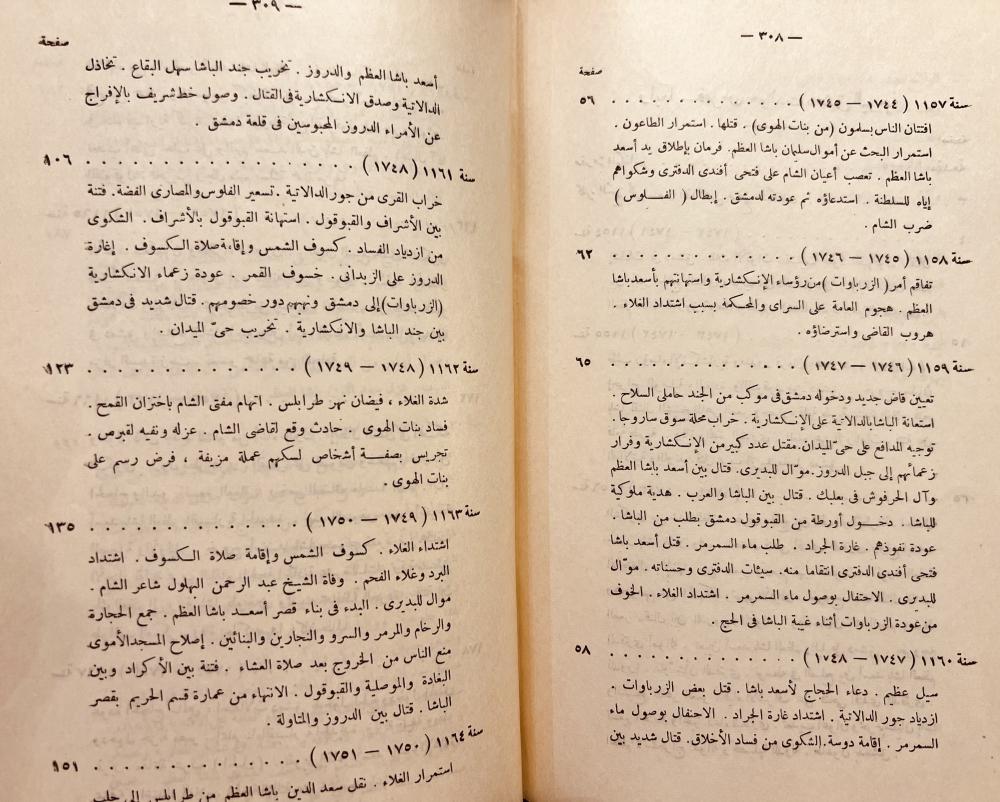 — ٣٠٨ —
صفحة
سنة ١١٥٧ ( ١٧٤٤ — ١٧٤٥ ) . . . . . . . . . . . . . ٥٦
افتتان الناس بسلمون (من بنات الهوى) . قتلها . استمرار الطاعون .
استمرار البحث عن أموال سليمان باشا العظم . فرمان بإطلاق يد أسعد
باشا العظم . تعصب أعيان الشام على فتحى أفندى الدفترى وشكواهم
إياه للسلطنة . استدعاؤه ثم عودته لدمشق . إبطال ( الفلوس )
ضرب الشام .
سنة ١١٥٨ ( ١٧٤٥ — ١٧٤٦ ) . . . . . . . . . . . . . ٦٢
تفاقم أمر ( الزرباوات ) من رؤساء الإنكشارية واستهانتهم بأسعد باشا
العظم . هجوم العامة على السراى والمحكمة بسبب اشتداد الغلاء .
هروب القاضى واسترضاؤه .
سنة ١١٥٩ ( ١٧٤٦ — ١٧٤٧ ) . . . . . . . . . . . . . ٦٥
تعيين قاض جديد ودخوله دمشق فى موكب من الجند حاملى السلاح .
استعانة الباشا بالدالاتية على الإنكشارية . خراب محلة سوق ساروجا .
توجيه المدافع على حىّ الميدان . مقتل عدد كبير من الإنكشارية وفرار
زعمائهم إلى جبل الدروز . موّال للبديرى . قتال بين أسعد باشا العظم
وآل الحرفوش فى بعلبك . قتال بين الباشا والعرب . هدية ملوكية
للباشا . دخول أورطة من القبوقول دمشق بطلب من الباشا .
عودة نفوذهم . غارة الجراد . طلب ماء السمرمر . قتل أسعد باشا
فتحى أفندى الدفترى انتقاما منه . سيئات الدفترى وحسناته . موّال
للبديرى . الاحتفال بوصول ماء السمرمر . اشتداد الغلاء . الخوف
من عودة الزرباوات أثناء غيبة الباشا فى الحج .
سنة ١١٦٠ ( ١٧٤٧ — ١٧٤٨ ) . . . . . . . . . . . . . ٥٨
سيل عظيم . دعاء الحجاج لأسعد باشا . قتل بعض الزرباوات .
ازدياد جور الدالاتية . اشتداد غارة الجراد . الاحتفال بوصول ماء
السمرمر . إقامة دوسة . الشكوى من فساد الأخلاق . قتال شديد بين
— ٣٠٩ —
صفحة
أسعد باشا العظم والدروز . تخريب جند الباشا سهل البقاع . تخاذل
الدالاتية وصدق الانكشارية فى القتال . وصول خط شريف بالإفراج
عن الأمراء الدروز المحبوسين فى قلعة دمشق .
سنة ١١٦١ ( ١٧٤٨ ) . . . . . . . . . . . . . . . . . ١٠٦
خراب القرى من جور الدالاتية . تسعير الفلوس والمصارى الفضة . فتنة
بين الأشراف والقبوقول . استهانة القبوقول بالأشراف . الشكوى
من ازدياد الفساد . كسوف الشمس وإقامة صلاة الكسوف . إغارة
الدروز على الزبدانى . خسوف القمر . عودة زعماء الانكشارية
(الزرباوات) إلى دمشق ونهبهم دور خصومهم . قتال شديد فى دمشق
بين جند الباشا والانكشارية . تخريب حىّ الميدان .
سنة ١١٦٢ ( ١٧٤٨ — ١٧٤٩ ) . . . . . . . . . . . . . ١٢٣
شدة الغلاء ، فيضان نهر طرابلس . اتهام مفتى الشام باختزان القمح .
فساد بنات الهوى . حادث وقع لقاضى الشام . عزله ونفيه لقبرص .
تجريس بصفة أشخاص لسكهم عملة مزيفة ، فرض رسم على
بنات الهوى .
سنة ١١٦٣ ( ١٧٤٩ — ١٧٥٠ ) . . . . . . . . . . . . . ١٣٥
اشتداء الغلاء . كسوف الشمس وإقامة صلاة الكسوف . اشتداد
البرد وغلاء الفحم . وفاة الشيخ عبد الرحمن البهلول شاعر الشام .
موال للبديرى . البدء فى بناء قصر أسعد باشا العظم . جمع الحجارة
والرخام والمرمر والسرو والنجارين والبنائين . إصلاح المسجد الأموى
منع الناس من الخروج بعد صلاة العشاء . فتنة بين الأكراد وبين
البغادة والموصلية والقبوقول . الانتهاء من عمارة قسم الحريم بقصر
الباشا . قتال بين الدروز والمتاولة .
سنة ١١٦٤ ( ١٧٥٠ — ١٧٥١ ) . . . . . . . . . . . . . ١٥١
استمرار الغلاء . نقل سعد الدين باشا العظم من طرابلس إلى حلب